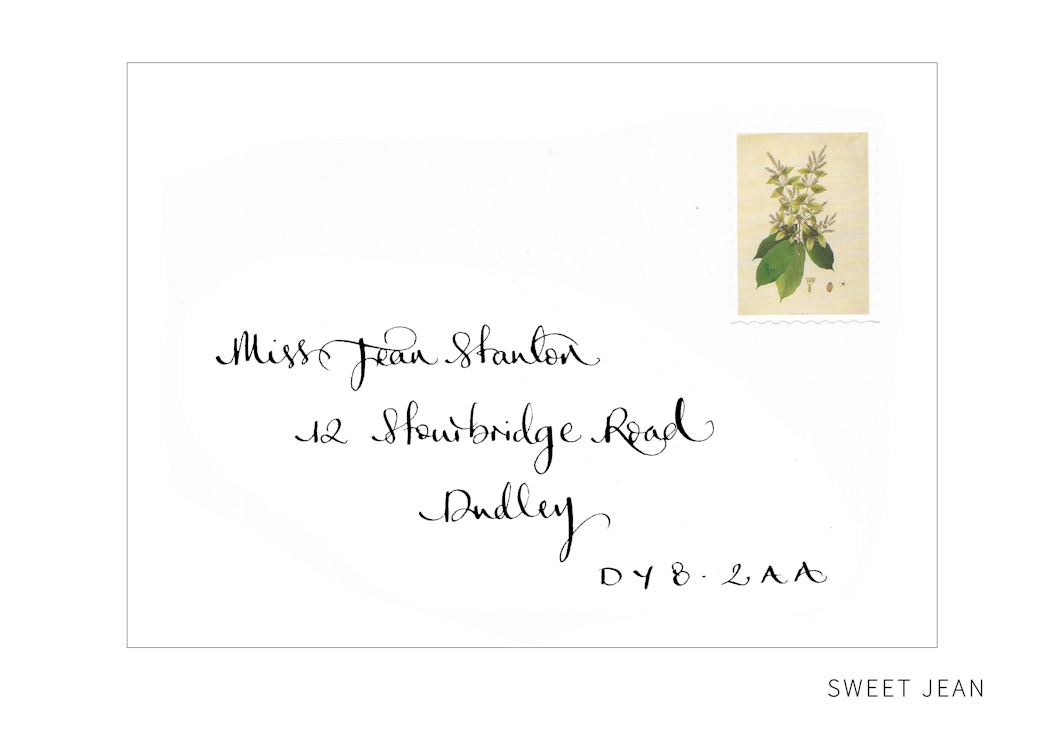 Miss Jean Stanton
12 Stourbridge Road
Dudley
DY8 · 2AA
SWEET JEAN